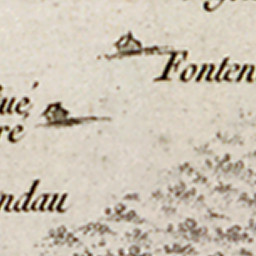 Fonten
ué,
re
ndau